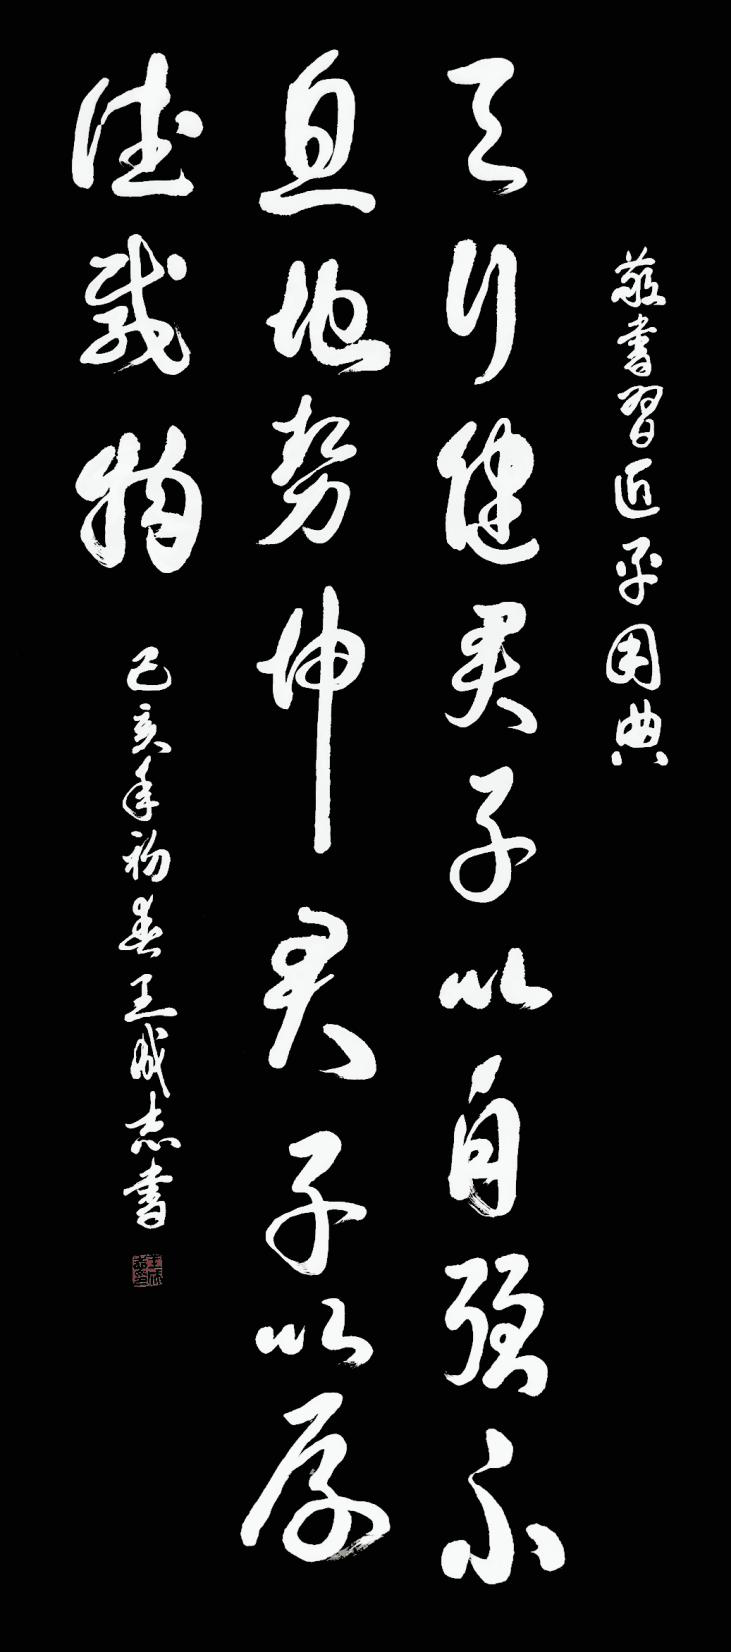 敬書習近平用典
天行健君子以自強不
息地勢坤君子以厚
德載物
己亥年初春王成志書